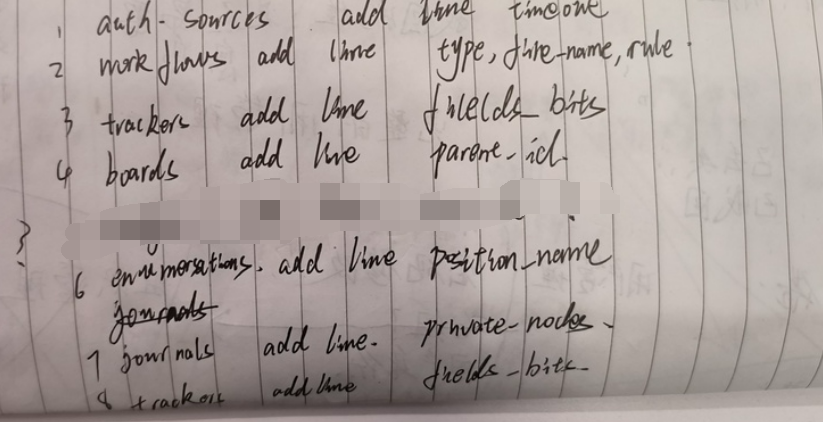 1 auth-sources add line timeout
2 workflows add line type, fire-name, rule.
3 trackers add line fields_bits
4 boards add line parent-id.
6 enumerations. add line position_name
journals
7 journals add line. private-nodes.
8 trackers add line fields_bits-